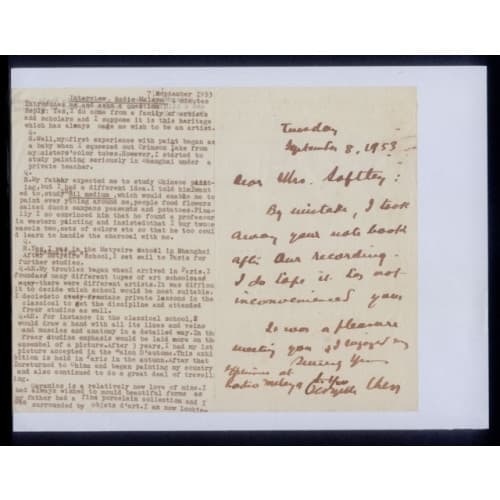 7 September 1953
Interview. Radio-Malaya minutes
Introduces me and asks a question
Reply: Yes, I do come from a family of artists
and scholars and I suppose it is this heritage
which has always made me wish to be an artist.
Q.
R.Well,my first experience with paint began as
a baby when I squeezed out Crimson Lake from
my sisters' color tubes.However,I started to
study painting seriously in Shanghai under a
private teacher.
Q.
R.My father expected me to study Chinese paint-
ing,but I had a different idea.I told him I want
ed to study Oil medium ,which would enable me to
paint everything around me,people food flowers
salted ducks sampans peasants and potatoes.Fina-
lly I so convinced him that he found a professor
in western painting and insisted that I buy two
easels two,sets of colors etc so that he too coul
d learn to handle the charcoal with me.
Q.
R.Yes,I was in the Motyeire School in Shanghai
After Motyeire School,I set sail to Paris for
further studies.
Q.&R.My troubles began when I arrived in Paris.I
found many different types of art schools and
there were different artists.It was diffic
ult to decide which would be most suitable.
I decided to take private lessons in the
classical to get the discipline and attended
freer studios as well.
Q.&R. For instance in the classical school,
would draw a hand with all its lines and veins
and muscles and anatomy in a detailed way.In the
freer studios emphasis would be laid more on the
of a picture.After 3 years.I had my 1st
picture accepted in the "Salon D'automne.This exhi
bition is held in Paris in the autumn.After that
I returned to China and began painting my country
and also continued to do a great deal of travell
ing.
Q. Ceramics is a relatively new love of mine.I
had always wished to mould beautiful forms as
my father had a fine porcelain collection and I
was surrounded by objets d'art.I am now
Tuesday
September 8, 1953
Dear Mrs.
By mistake, I took
away your note book
after our recording.
I do hope it has not
inconvenienced you
It was a pleasure
meeting you & I enjoyed my
interview at
Radio Malaya
Sincerely Yours
Georgette Chen